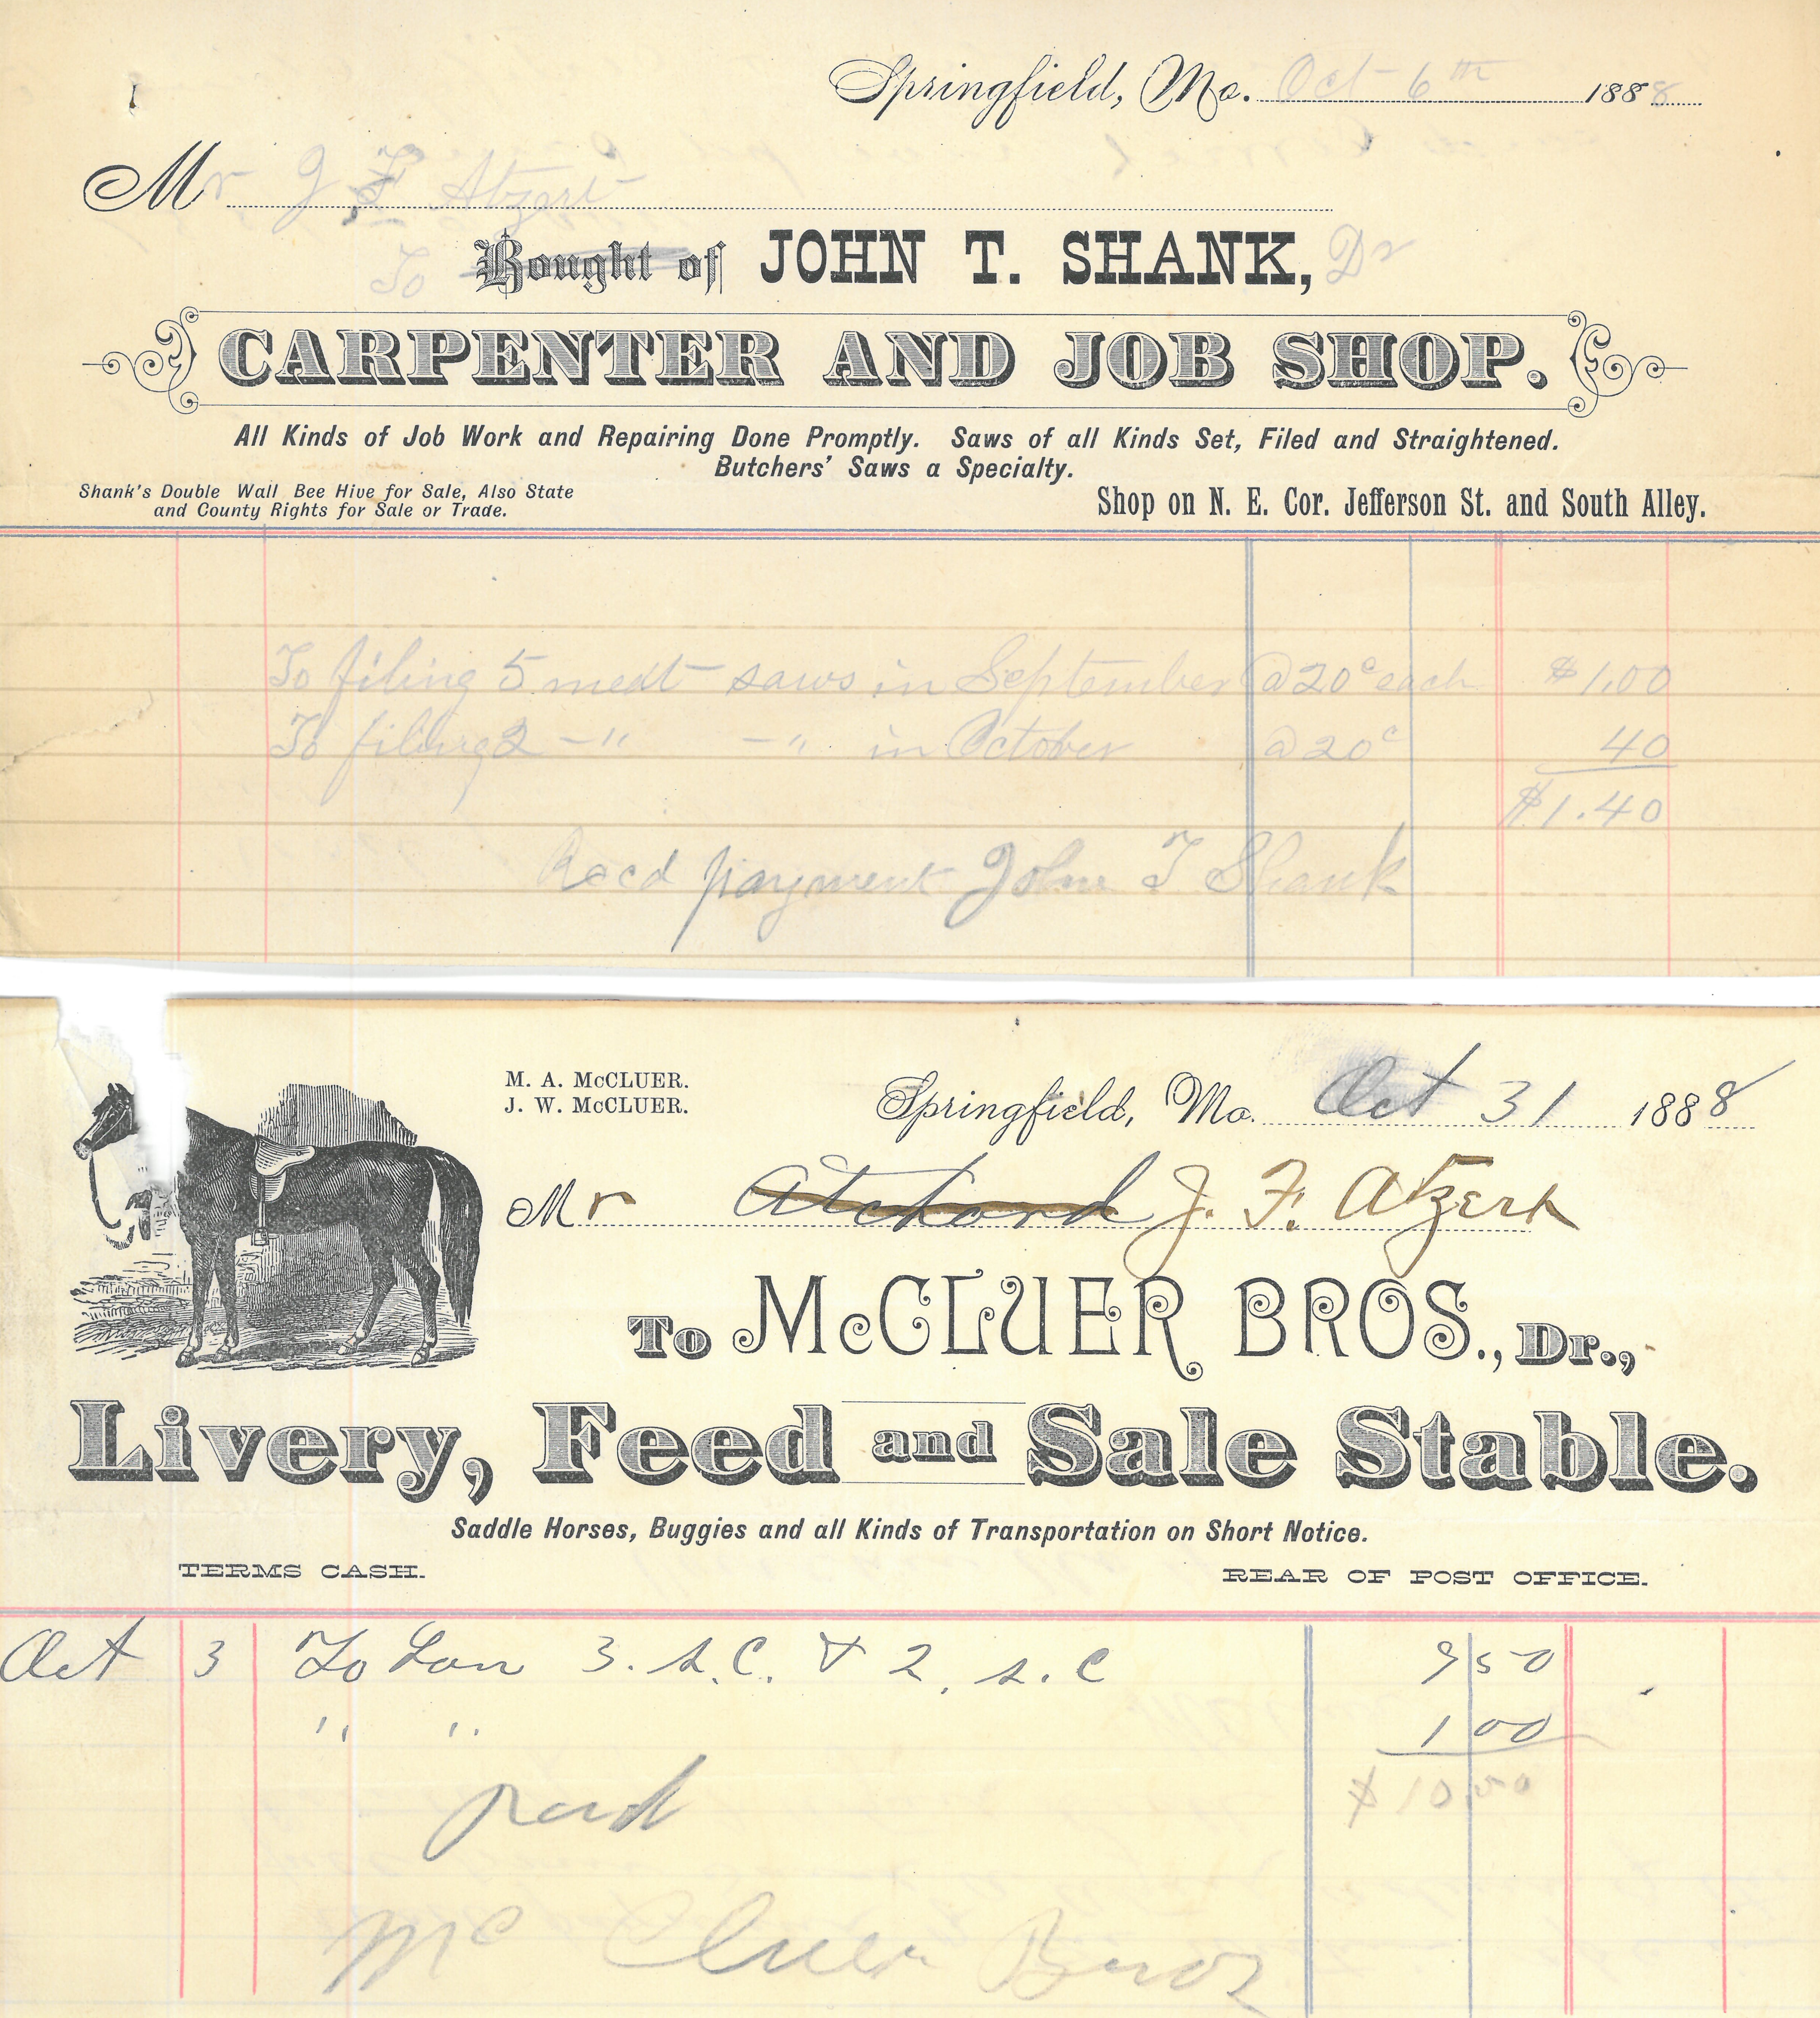 Springfield, Mo. Oct 6th 1888
Mr J F Atzert
To Bought of JOHN T. SHANK, Dr
CARPENTER AND JOB SHOP.
All Kinds of Job Work and Repairing Done Promptly. Saws of all Kinds Set, Filed and Straightened.
Butchers' Saws a Specialty.
Shank's Double Wall Bee Hive for Sale, Also State
and County Rights for Sale or Trade.
Shop on N. E. Cor. Jefferson St. and South Alley.
To filing 5 meat saws in September @ 20c each $1.00
To filing 2 -" -" in October @ 20c 40
$1.40
Recd payment John T Shank
M. A. McCLUER.
J. W. McCLUER.
Springfield, Mo. Oct 31 1888
Mr Atchord J. F. Atzert
To McCLUER BROS., Dr.,
Livery, Feed and Sale Stable.
Saddle Horses, Buggies and all Kinds of Transportation on Short Notice.
TERMS CASH.
REAR OF POST OFFICE.
Oct 3 To 3. S.C. & 2. S.C 9 50
" " 1 00
$10 50
Paid
McCluer Bros